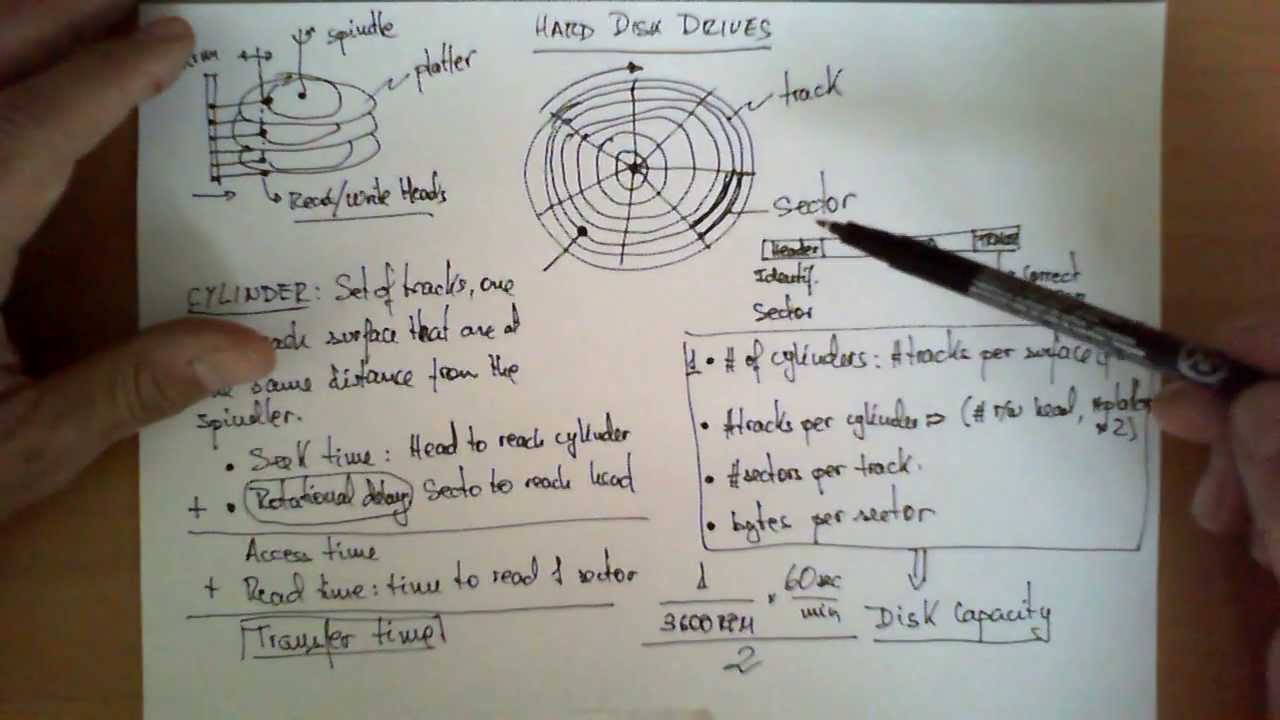 HARD DISK DRIVES
spindle
platter
Read/Write Heads
track
sector
Header
Identif.
Sector
Correct
CYLINDER: Set of tracks, one
surface that are at
same distance from the
spindler.
• Seek time: Head to reach cylinder
+ • Rotational delay Secto to reach head
Access time
+ Read time: time to read 1 sector
Transfer time
• # of cylinders: #tracks per surface
• #tracks per cylinder ⇒ (# r/w head, #platters
* 2)
• #sectors per track.
• bytes per sector
Disk Capacity
1
3600 RPM
* 60 sec
min
2